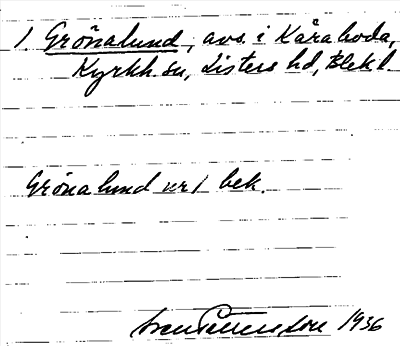 1. Grönalund, avs. i Kåraboda,
Kyrkh. sn, Listers hd, Blek. l.
Grönalund nr 1 bek.
1936